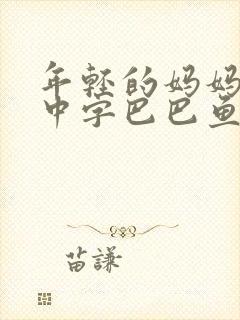 年轻的妈妈
中字巴巴鱼
苗謙